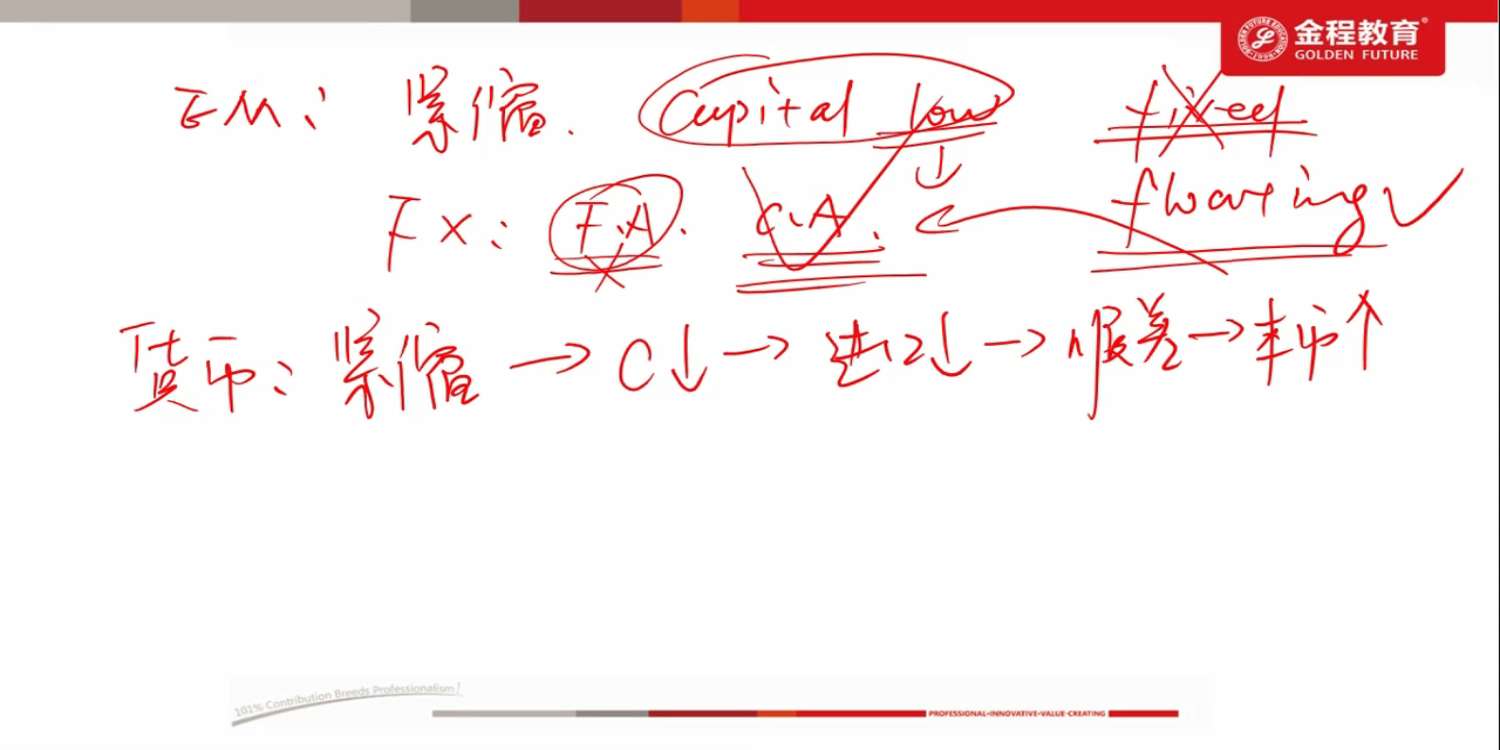 金程教育®
GOLDEN FUTURE
EM: 紧缩. Capital low fixed
FX: F.A. C.A. floating
货币: 紧缩 → C↓ → 进口↓ → 顺差 → 本币↑
101% Contribution Breeds Professionalism!
PROFESSIONAL•INNOVATIVE•VALUE-CREATING